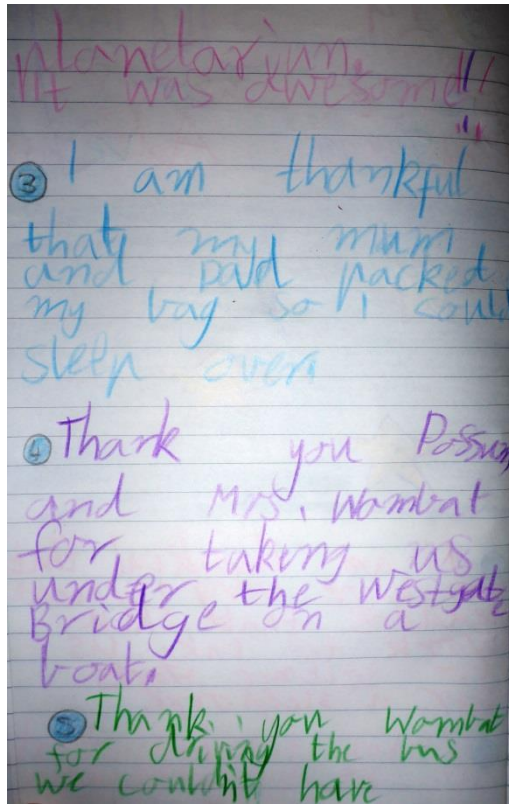 planetariun.
It was awesome!!!
3 I am thankful
that my mum
and Dad packed
my bag so I could
sleep over.
4 Thank you Possum
and Mrs. Wombat
for taking us
under the Westgate
Bridge on a
boat.
5 Thank you Wombat
for driving the bus
we couldn't have